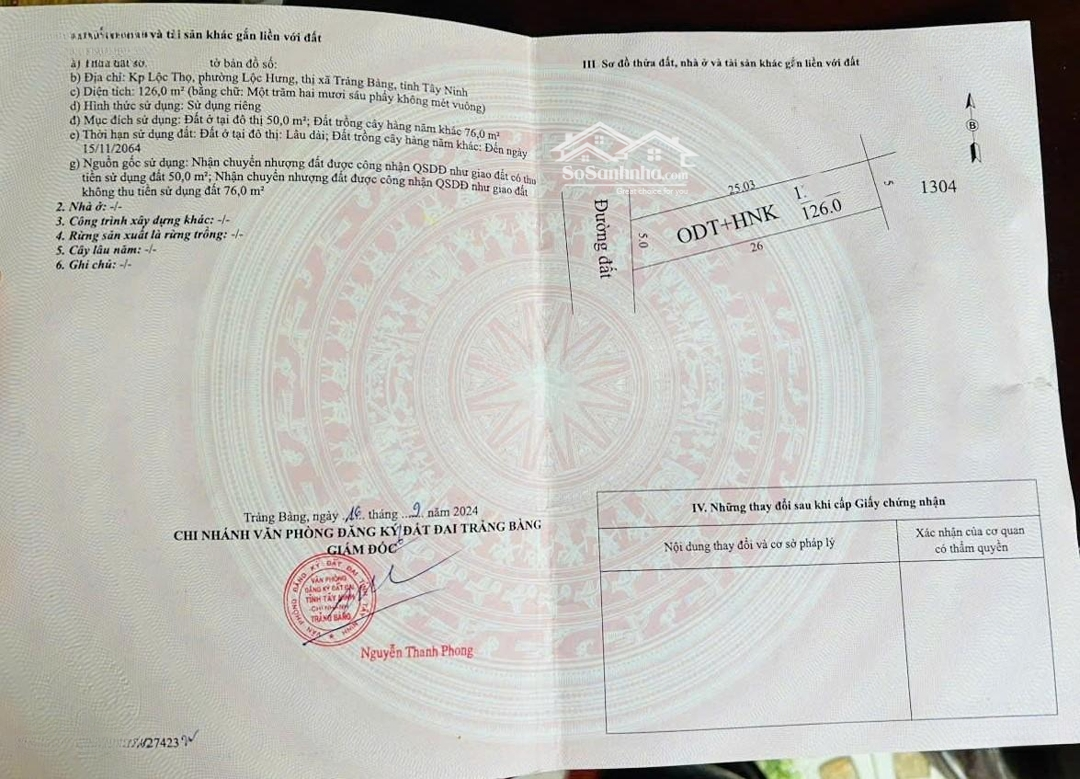 và tài sản khác gắn liền với đất
tờ bản đồ số:
b) Địa chỉ: Kp Lộc Thọ, phường Lộc Hưng, thị xã Trảng Bàng, tỉnh Tây Ninh
c) Diện tích: 126,0 m² (bằng chữ: Một trăm hai mươi sáu phẩy không mét vuông)
d) Hình thức sử dụng: Sử dụng riêng
đ) Mục đích sử dụng: Đất ở tại đô thị 50,0 m²; Đất trồng cây hàng năm khác 76,0 m²
e) Thời hạn sử dụng đất: Đất ở tại đô thị: Lâu dài; Đất trồng cây hàng năm khác: Đến ngày
15/11/2064
g) Nguồn gốc sử dụng: Nhận chuyển nhượng đất được công nhận QSDĐ như giao đất có thu
tiền sử dụng đất 50,0 m²; Nhận chuyển nhượng đất được công nhận QSDĐ như giao đất
không thu tiền sử dụng đất 76,0 m²
2. Nhà ở: -/-
3. Công trình xây dựng khác: -/-
4. Rừng sản xuất là rừng trồng: -/-
5. Cây lâu năm: -/-
6. Ghi chú: -/-
Trảng Bàng, ngày 16 tháng 9 năm 2024
CHI NHÁNH VĂN PHÒNG ĐĂNG KÝ ĐẤT ĐAI TRẢNG BÀNG
GIÁM ĐỐC
VĂN PHÒNG
ĐĂNG KÝ ĐẤT ĐAI
TỈNH TÂY NINH
CHI NHÁNH
TRẢNG BÀNG
Nguyễn Thanh Phong
27423
III. Sơ đồ thửa đất, nhà ở và tài sản khác gắn liền với đất
B
SoSanhnha.com
Great choice for you
Đường đất
25.03
5.0
ODT+HNK
126.0
26
5
1304
IV. Những thay đổi sau khi cấp Giấy chứng nhận
Nội dung thay đổi và cơ sở pháp lý
Xác nhận của cơ quan
có thẩm quyền